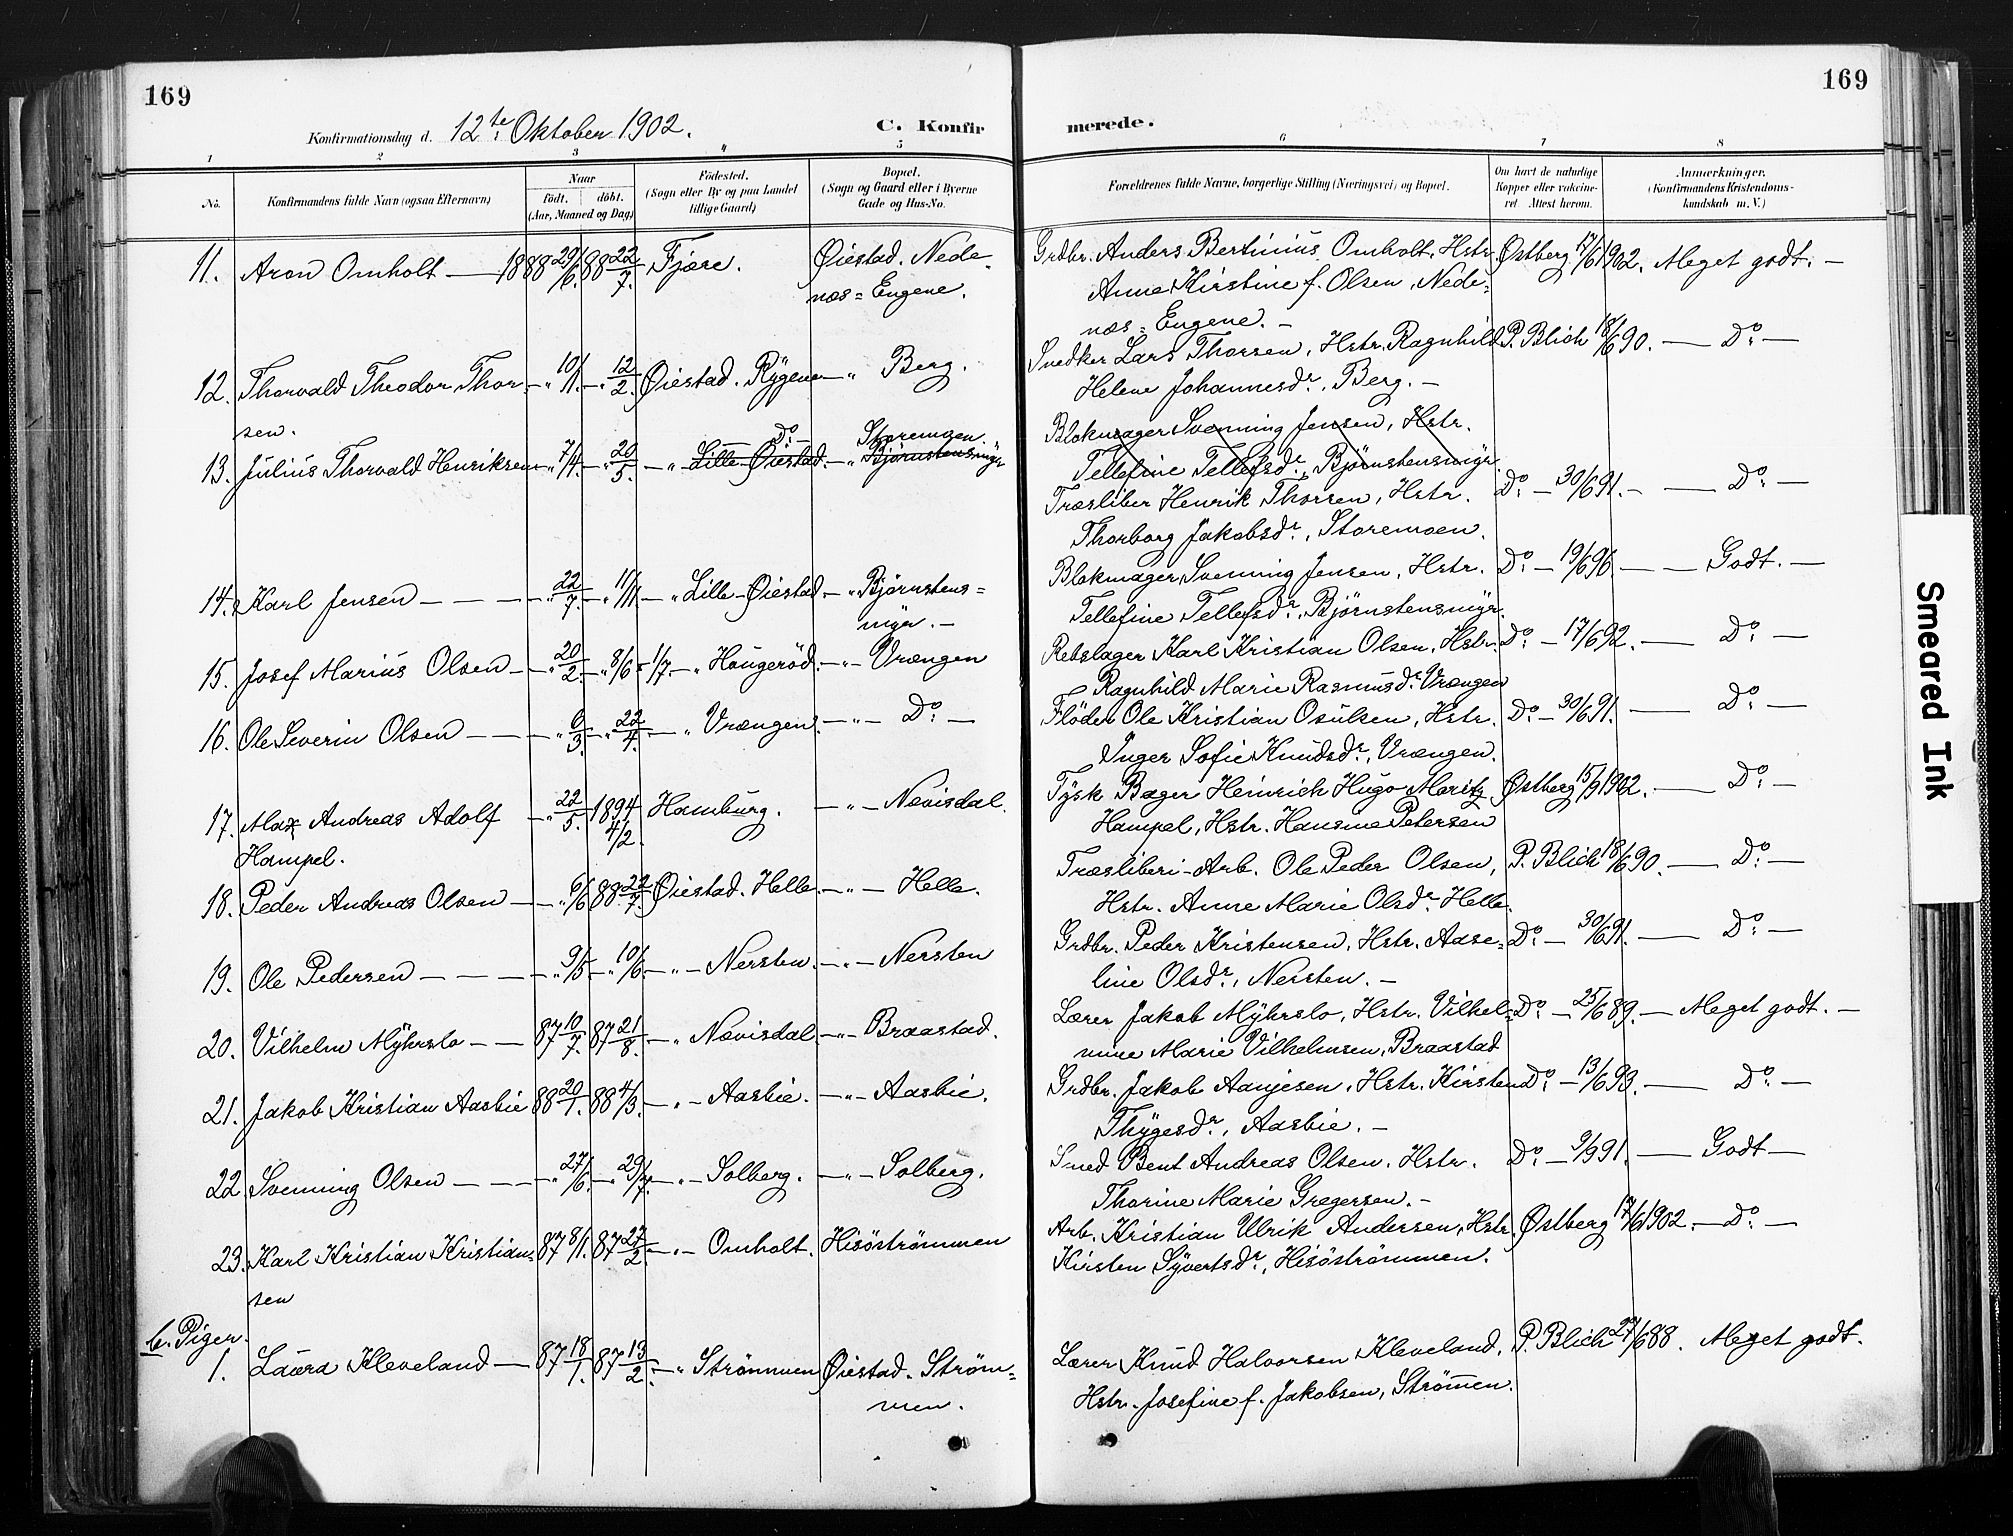 169
169
Konfirmationsdag d. 12te Oktober 1902.
C. Konfir
merede.
1 2 3 4 5 6 7 8
No.
Konfirmandens fulde Navn (ogsaa Efternavn)
Naar
født. døbt.
(Aar, Maaned og Dag)
Fødested.
(Sogn eller By og paa Landet
tillige Gaard)
Bopæl.
(Sogn og Gaard eller i Byerne
Gade og Hus-No.
Forældrenes fulde Navne, borgerlige Stilling (Næringsvei) og Bopæl.
Om havt de naturlige
Kopper eller vakcine-
ret Attest herom.
Anmærkninger.
(Konfirmandens Kristendoms-
kundskab m. V.)
11. Aron Omholt — 1888 29/6. 88 22/7. Fjære. Øiestad. Nede-
næs=Engene.
Grdbr. Anders Bertinius Omholt, Hstr. Østberg 17/6 1902. Meget godt. —
Anne Kirstine f. Olsen, Nede=
næs=Engene. —
12. Thorvald Theodor Thor- — " 10/11. — " 12/2. Øiestad. Rygene — " Berg.
sen.
Snedker Lars Thorsen, Hstr. Ragnhild P. Blich 18/6 90. — Do —
Helene Johannesdr., Berg. —
13. Julius Thorvald Henriksen — " 7/4. — " 20/5. — " Lille-Øiestad. Do — — " Bjørnstensmyr Storemoen.
Blokmager Svenning Jensen, Hstr.
Tellefine Tellefsdr., Bjørnstensmyr.
Træsliber Henrik Thorsen, Hstr. Do. — 30/6 91. — — Do. —
Thorborg Jakobsdr., Storemoen.
14. Karl Jensen — — — " 22/7. — " 11/11 — " Lille-Øiestad — " Bjørnstens=
myr. —
Blokmager Svenning Jensen, Hstr. Do. — 19/6 96. — — Godt. —
Tellefine Tellefsdr., Bjørnstensmyr.
15. Josef Marius Olsen — " 20/2. — " 8/6 - 1/7. — " Haugerød. — " — Vrængen
Rebslager Karl Kristian Olsen, Hstr. Do. — 17/6 92. — Do. —
Ragnhild Marie Rasmusdr. Vrængen
16. Ole Severin Olsen — — — " 6/3. — " 22/4. — " Vrængen. — " — Do. —
Fløder Ole Kristian Osulsen, Hstr. Do. — 30/6 91. — Do. —
Inger Sofie Knudsdr., Vrængen.
17. Max Andreas Adolf — " 22/5. 1894 4/2. Hamburg. — " — Nevisdal.
Hampel.
Tysk Bager Heinrich Hugo Moritz Østberg 15/9 1902. — Do. —
Hampel, Hstr. Hansine Petersen
18. Peder Andreas Olsen — — " 6/6 88 22/7. Øiestad. Helle. — " — Helle.
Træsliberi-Arb. Ole Peder Olsen, P. Blich 18/6 90. — Do. —
Hstr. Anne Marie Olsdr. Helle.
19. Ole Pedersen — — — — " 9/5 — " 10/6 — " — Nersten. — " — Nersten
Grdbr. Peder Kristensen, Hstr. Aase= Do. — 30/6 91. — Do. —
line Olsdr., Nersten. —
20. Vilhelm Myhrslo — — 87 10/7. 87 21/8. — " Nævisdal. — " — Braastad.
Lærer Jakob Myhrslo, Hstr. Vilhel= Do. — 25/6 89. — Meget godt. —
mine Marie Vilhelmsen, Braastad
21. Jakob Kristian Aasbie 88 20/1. 88 4/3. — " — Aasbie. — " — Aasbie.
Grdbr. Jakob Aanjesen, Hstr. Kirsten Do. — 13/6 93. — Do. —
Thygesdr., Aasbie. —
22. Svenning Olsen — — — — " 27/6. — " 29/7. — " — Solberg. — " — Solberg.
Smed Bent Andreas Olsen. Hstr. Do. — 9/9 91. — Godt —
Thorine Marie Gregersen. —
23. Karl Kristian Kristian= 87 8/1. 87 27/2. — " — Omholt. Hisøstrømmen
sen
Arb. Kristian Ulrik Andersen, Hstr. Østberg 17/6 1902. — Do. —
Kirsten Syvertsdr., Hisøstrømmen.
b. Piger.
1. Laura Kleveland — 87 18/1. 87 13/2. — " Strømmen Øiestad. Strøm=
men.
Lærer Knud Halvorsen Kleveland, P. Blich 27/6 88. Meget godt.
Hstr. Josefine f. Jakobsen, Strømen.
Smeared Ink